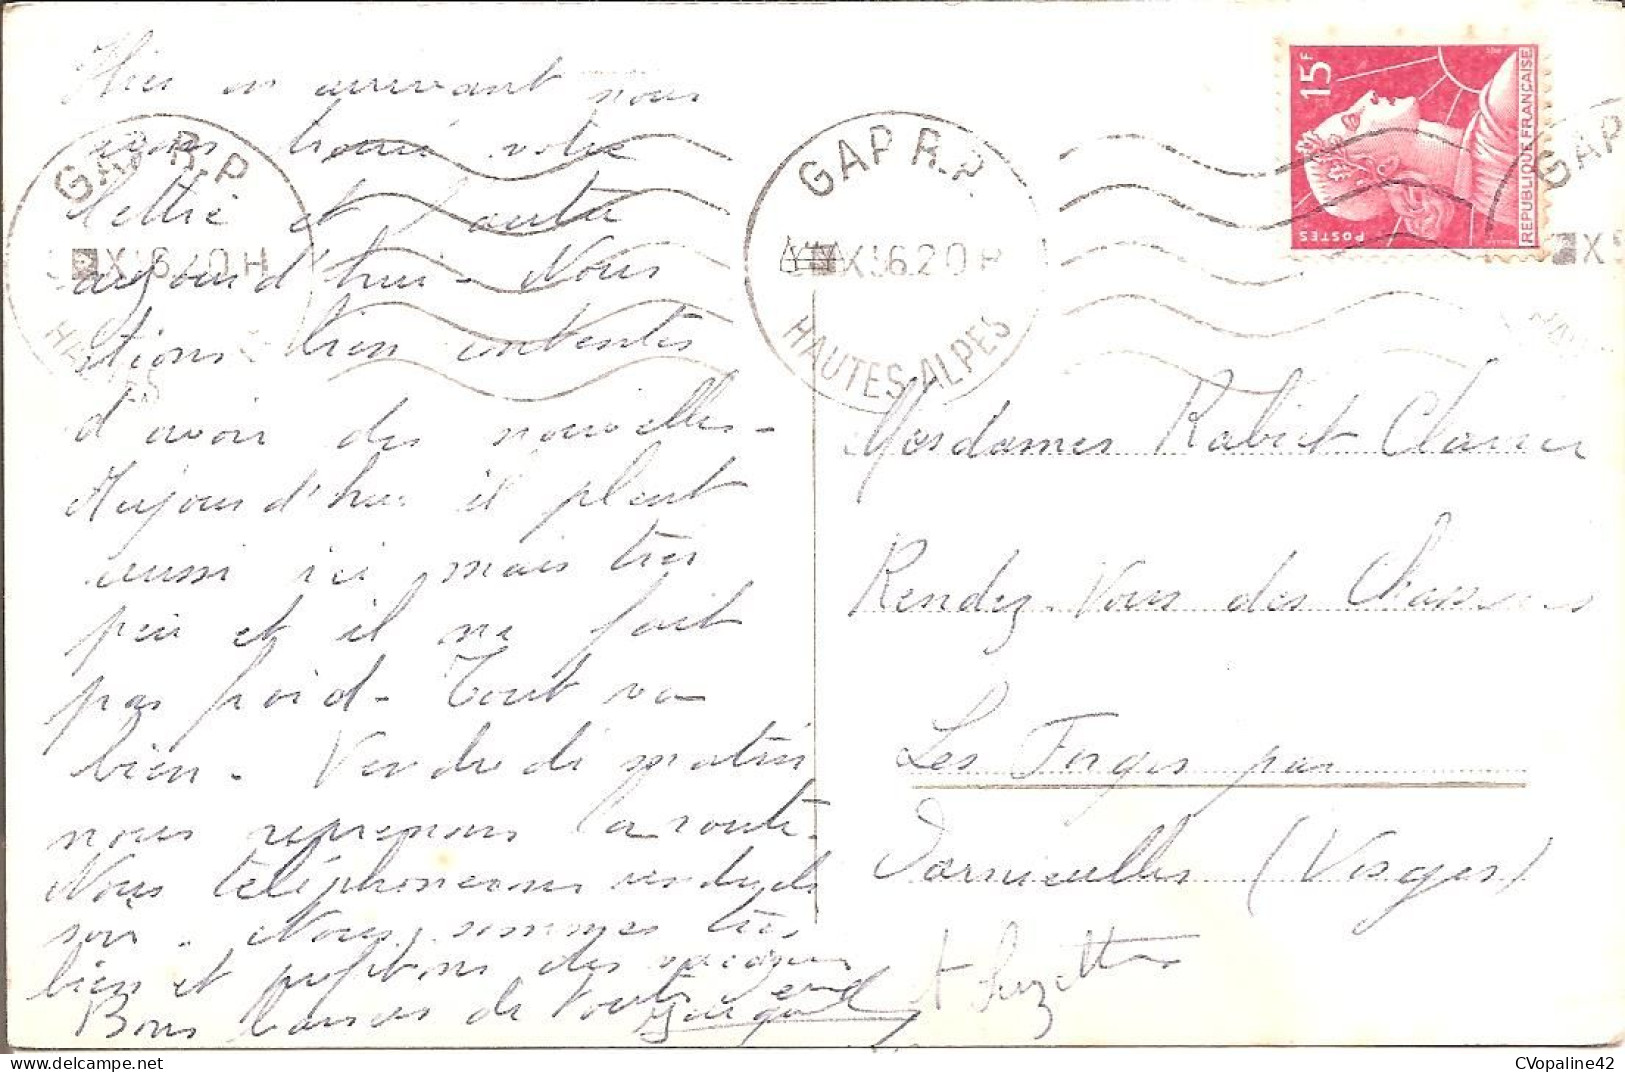 Hier en arrivant nous
avons trouvé votre
lettre et l'autre
aujourd'hui - Nous
étions bien contentes
d'avoir des nouvelles -
Aujourd'hui il pleut
aussi ici mais très
peu et il ne fait
pas froid - Tout va
bien - Vendredi matin
nous reprenons la route -
Nous téléphonerons vendredi
soir - Nous sommes très
bien et profitons des vacances
Bons baisers de toutes
Suzette
GAP R.P.
HAUTES-ALPES
GAP R.P.
20 H
HAUTES-ALPES
GAP
15F
POSTES
REPUBLIQUE FRANÇAISE
Mesdames Rabiet
Rendez-Vous des Chasseurs
Les Forges par
Darnieulles (Vosges)
CVopaline42